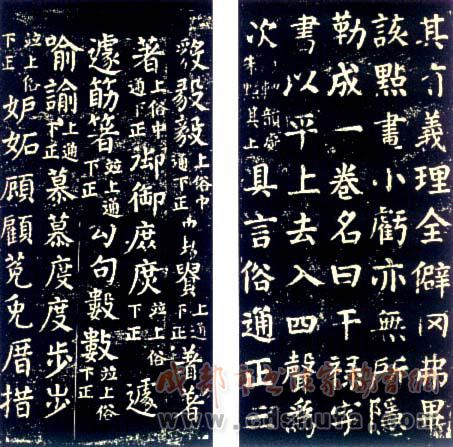 其義理全僻罔弗畢
該點畫小虧亦無所隱
勒成一卷名曰干禄字
書以平上去入四聲為
次韻處朱點其上具言俗通正三
毅上俗中通下正賢上通下正著着
著上俗中通下正御御庶庶並上俗下正遽
遽筯箸並上通下正勾句數數並上俗下正
喻諭上通下正慕慕度度步步
並上俗下正妒妬顧顧菟兔厝措